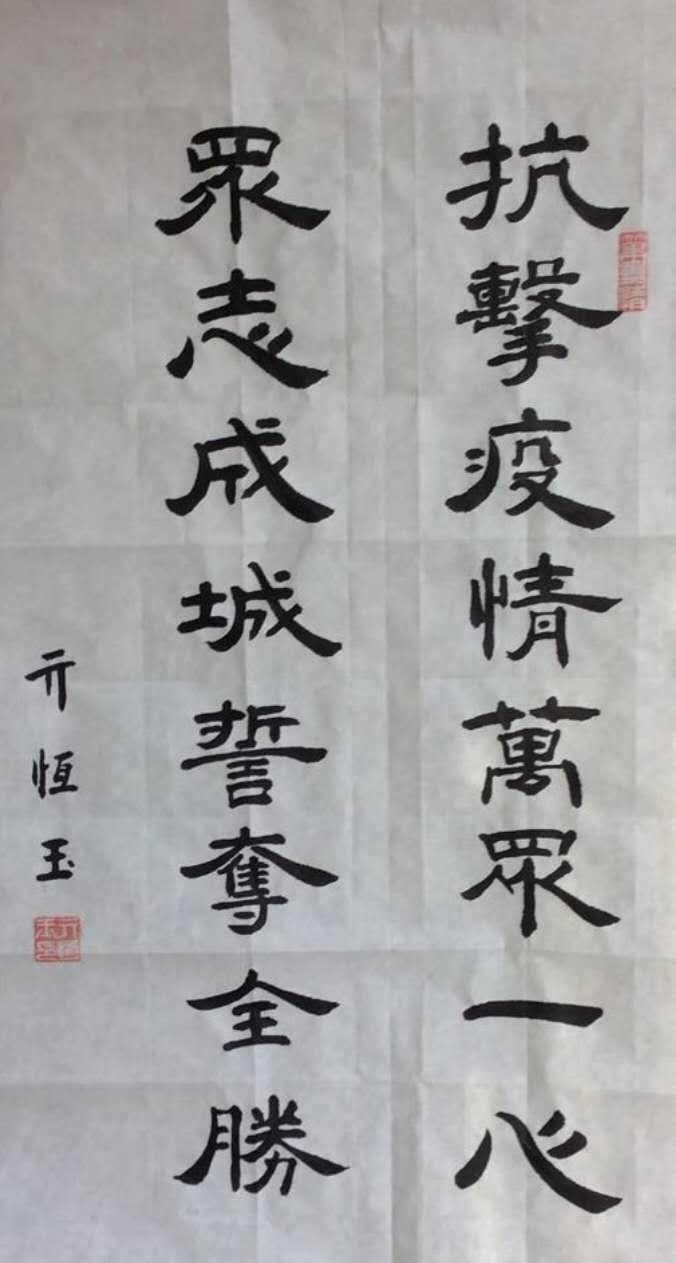 抗擊疫情萬眾一心
眾志成城誓奪全勝
亓恒玉